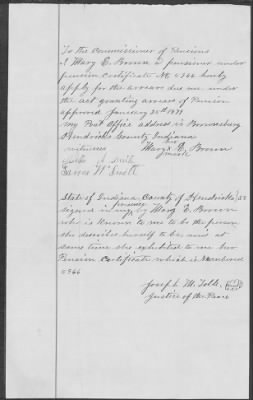 To the Commissioner of Pensions
I Mary E. Brown a pensioner under
pension certificate No 4366 hereby
apply for the arrears due me under
the act granting arrears of Pension
approved January 25th 1879
My Post Office address is Brownsburg
Hendricks County Indiana
witness
her
Mary X E. Brown
mark
State of Indiana County of Hendricks, ss
signed in my presence by Mary E. Brown
who is known to me to be the person
she describes herself to be and at
same time she exhibited to me her
Pension Certificate which is numbered
4366
Joseph M.
Justice of the Peace